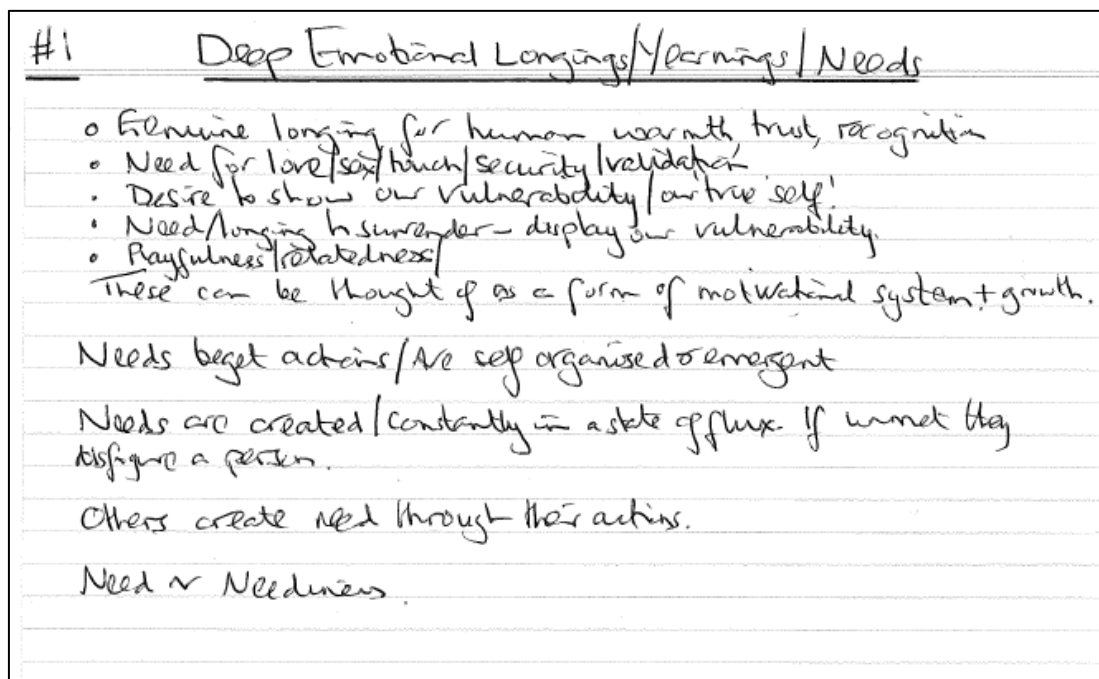 #1 Deep Emotional Longings/Yearnings/Needs
• Genuine longing for human warmth, trust, recognition
• Need for love/sex/touch/security/validation
• Desire to show our vulnerability/our true 'self'.
• Need/longing to surrender - display our vulnerability.
• Playfulness/relatedness/
These can be thought of as a form of motivational system + growth.
Needs beget actions/Are self organised & emergent
Needs are created/constantly in a state of flux. If unmet they
disfigure a person.
Others create need through their actions.
Need v Neediness.